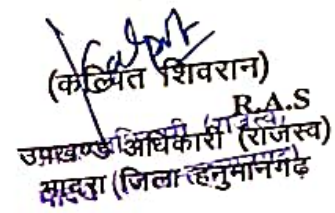 (कल्पित शिवरान)
R.A.S
उपखण्ड अधिकारी (राजस्व)
भादरा (जिला हनुमानगढ़